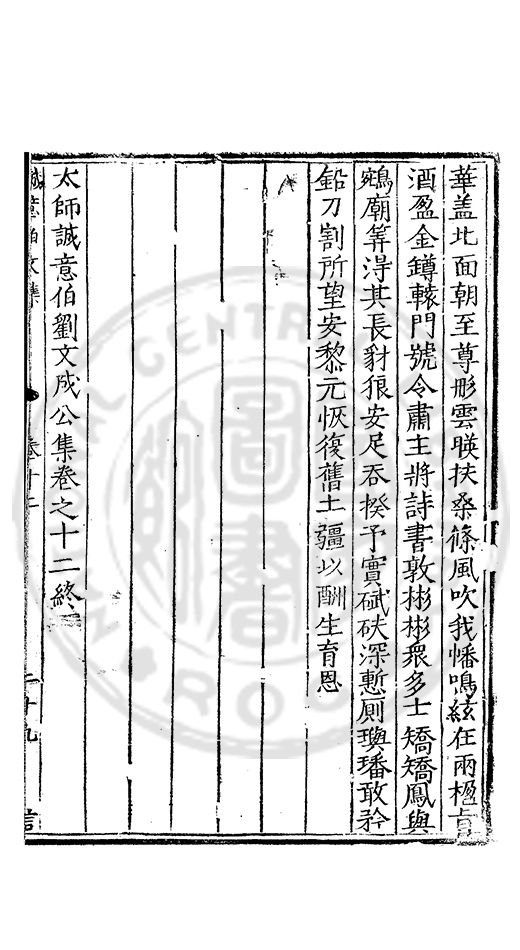 華盖北面朝至尊彤雲暎扶桑篠風吹我幡鳴絃在兩楹旨
酒盈金鐏轅門號令肅主將詩書敦彬彬衆多士矯矯鳳與
鵷廟筭淂其長豺狼安足吞揆予實碔砆深慙厠璵璠敢矜
鉛刀割所望安黎元恢復舊土疆以酬生育恩
太師誠意伯劉文成公集卷之十二終
誠意伯文集
卷十二
二十九